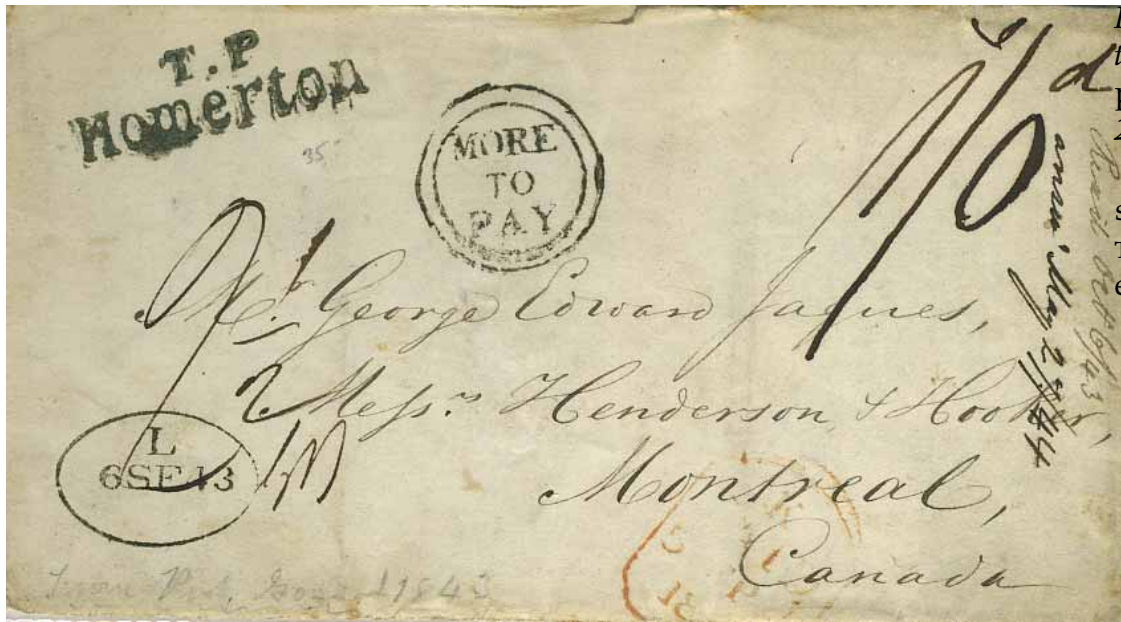 T.P
Homerton
35
MORE
TO
PAY
1/6d
Mr. George Edward Jaques,
Messrs Henderson & Hooker,
Montreal,
Canada
L
6SE43
ansrd May 27/44
Oct 6/43
1843